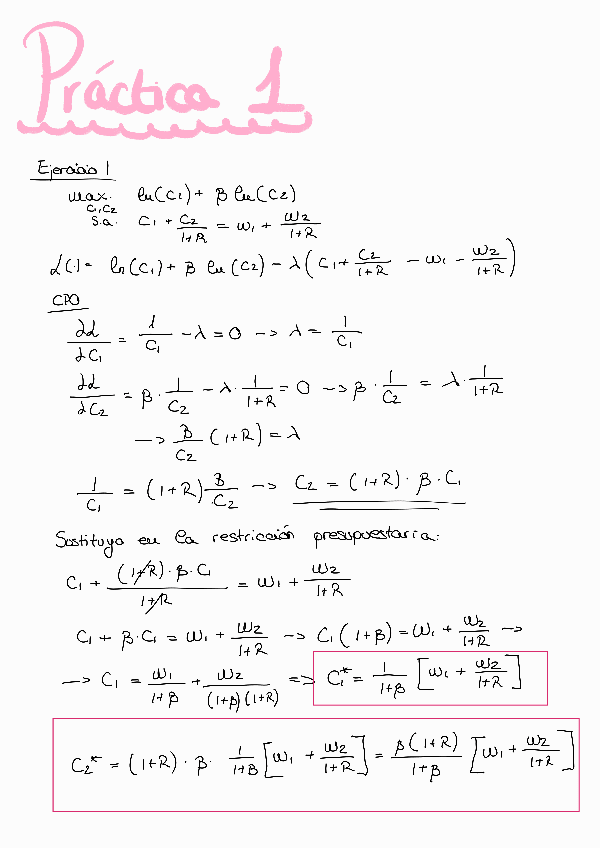 Práctica 1
Ejercicio 1
max. ln(C₁) + β ln(C₂)
C₁,C₂
s.a. C₁ + C₂/(1+R) = ω₁ + ω₂/(1+R)
L(·) = ln(C₁) + β ln(C₂) − λ(C₁ + C₂/(1+R) − ω₁ − ω₂/(1+R))
CPO
∂L/∂C₁ = 1/C₁ − λ = 0 → λ = 1/C₁
∂L/∂C₂ = β · 1/C₂ − λ · 1/(1+R) = 0 → β · 1/C₂ = λ · 1/(1+R)
→ β/C₂ (1+R) = λ
1/C₁ = (1+R) β/C₂ → C₂ = (1+R) · β · C₁
Sustituyo en la restricción presupuestaria:
C₁ + (1+R) · β · C₁/(1+R) = ω₁ + ω₂/(1+R)
C₁ + β · C₁ = ω₁ + ω₂/(1+R) → C₁(1+β) = ω₁ + ω₂/(1+R) →
→ C₁ = ω₁/(1+β) + ω₂/((1+β)(1+R)) => C₁* = 1/(1+β) [ω₁ + ω₂/(1+R)]
C₂* = (1+R) · β · 1/(1+β) [ω₁ + ω₂/(1+R)] = β(1+R)/(1+β) [ω₁ + ω₂/(1+R)]